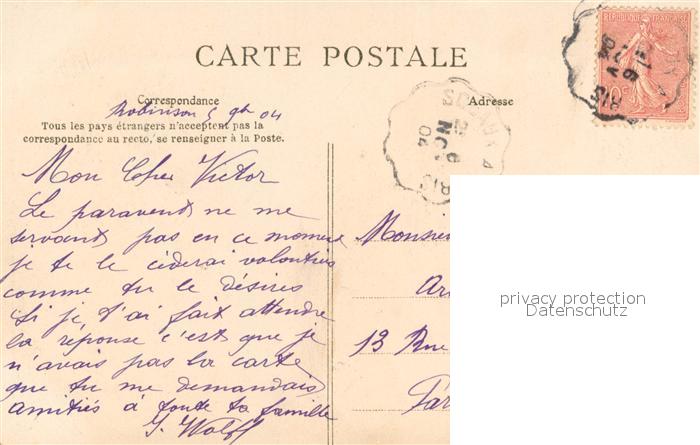 RÉPUBLIQUE FRANÇAISE
CARTE POSTALE
Correspondance
Adresse
Robinson 5 9b 04
Tous les pays étrangers n'acceptent pas la
correspondance au recto, se renseigner à la Poste.
Mon Cher Victor
Le paravent ne me
servant pas en ce moment
je te le céderai volontiers
comme tu le désires
Si je t'ai fait attendre
la réponse c'est que je
n'avais pas la carte
que tu me demandais
amitiés à toute ta famille
J. Wolff
Monsie
Ar
13 Rue
Par
privacy protection
Datenschutz